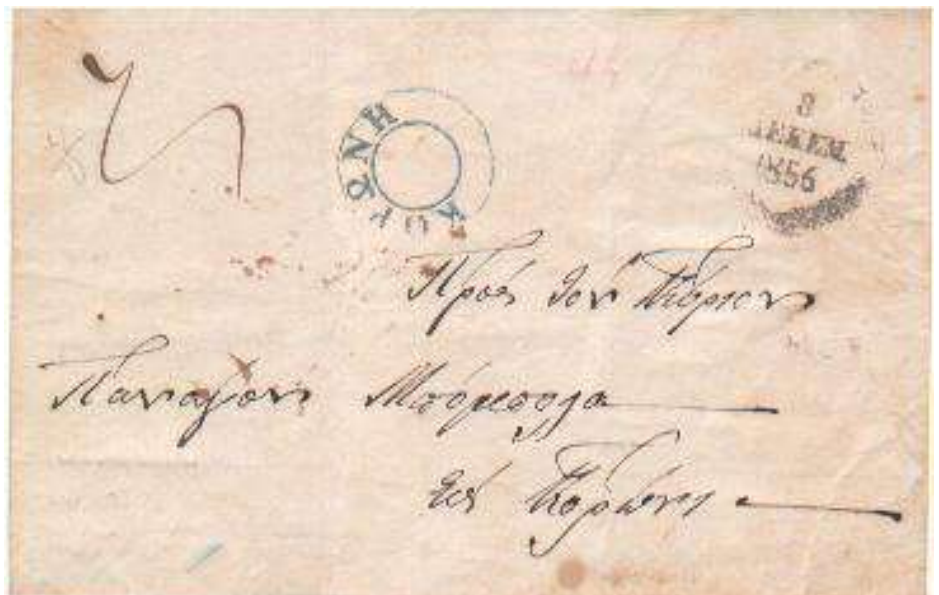 ΚΟΡΩΝΗ
8
ΔΕΚΕΜ
1856
Πρὸς τὸν Κύριον
Παναγον
εἰς Κορώνην